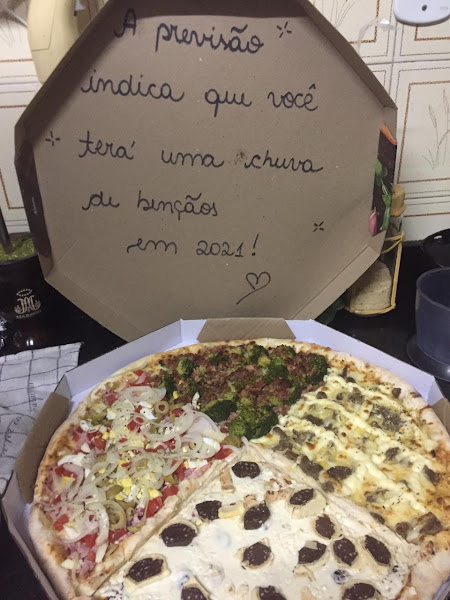 A previsão
indica que você
terá uma chuva
de bençãos
em 2021!